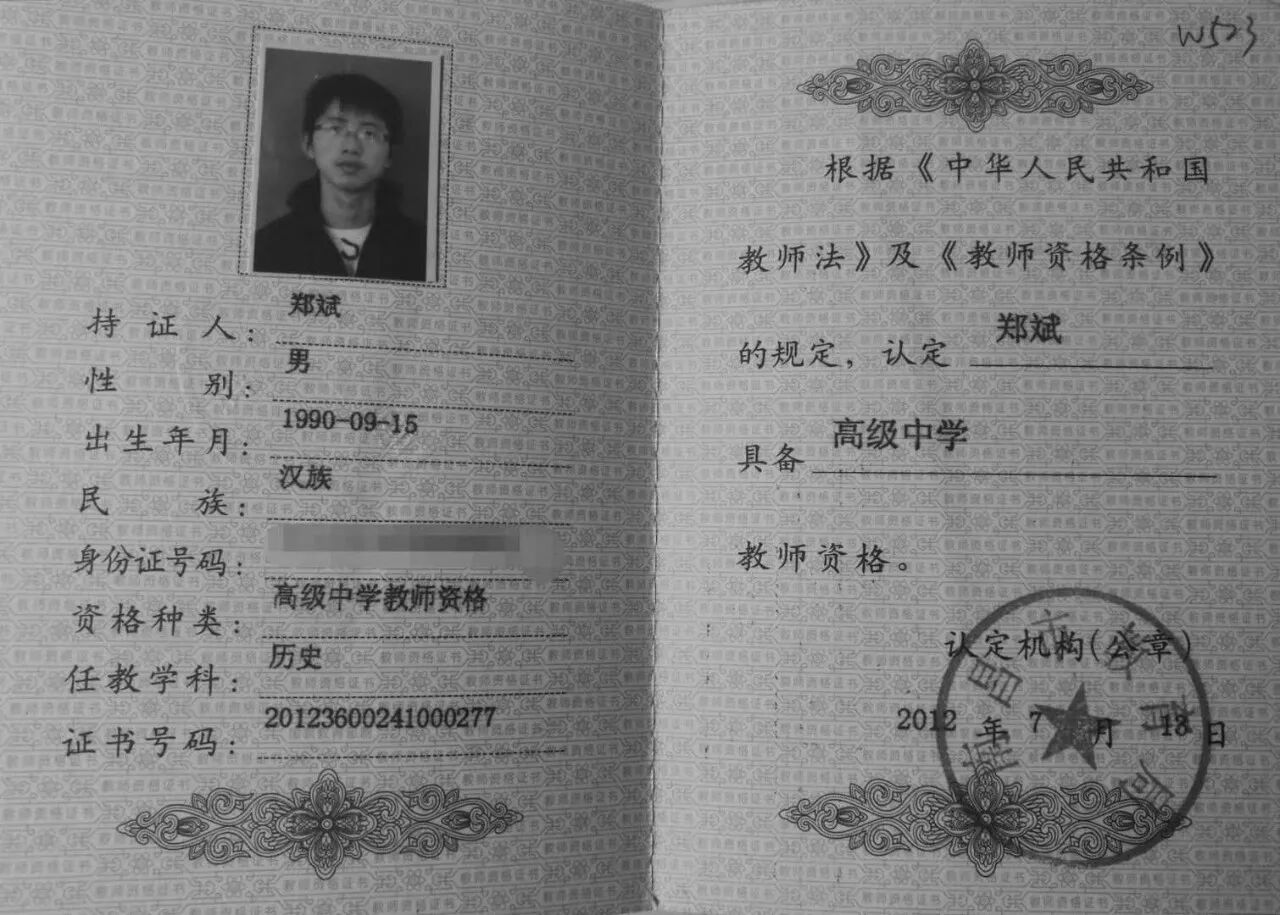 持证人：郑斌
性别：男
出生年月：1990-09-15
民族：汉族
身份证号码：
资格种类：高级中学教师资格
任教学科：历史
证书号码：20123600241000277
W523
根据《中华人民共和国
教师法》及《教师资格条例》
的规定，认定 郑斌
具备 高级中学
教师资格。
认定机构(公章)
2012 年 7 月 13 日
南昌市教育局